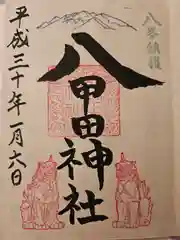 八峯鎮護
八甲田神社
平成三十年一月六日